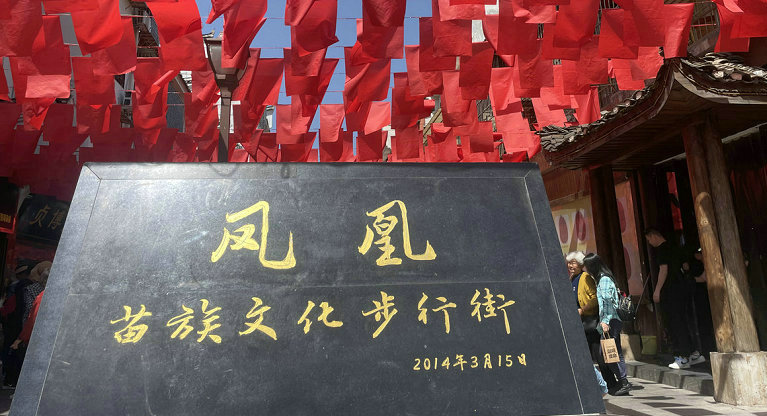 凤凰
苗族文化步行街
2014年3月15日